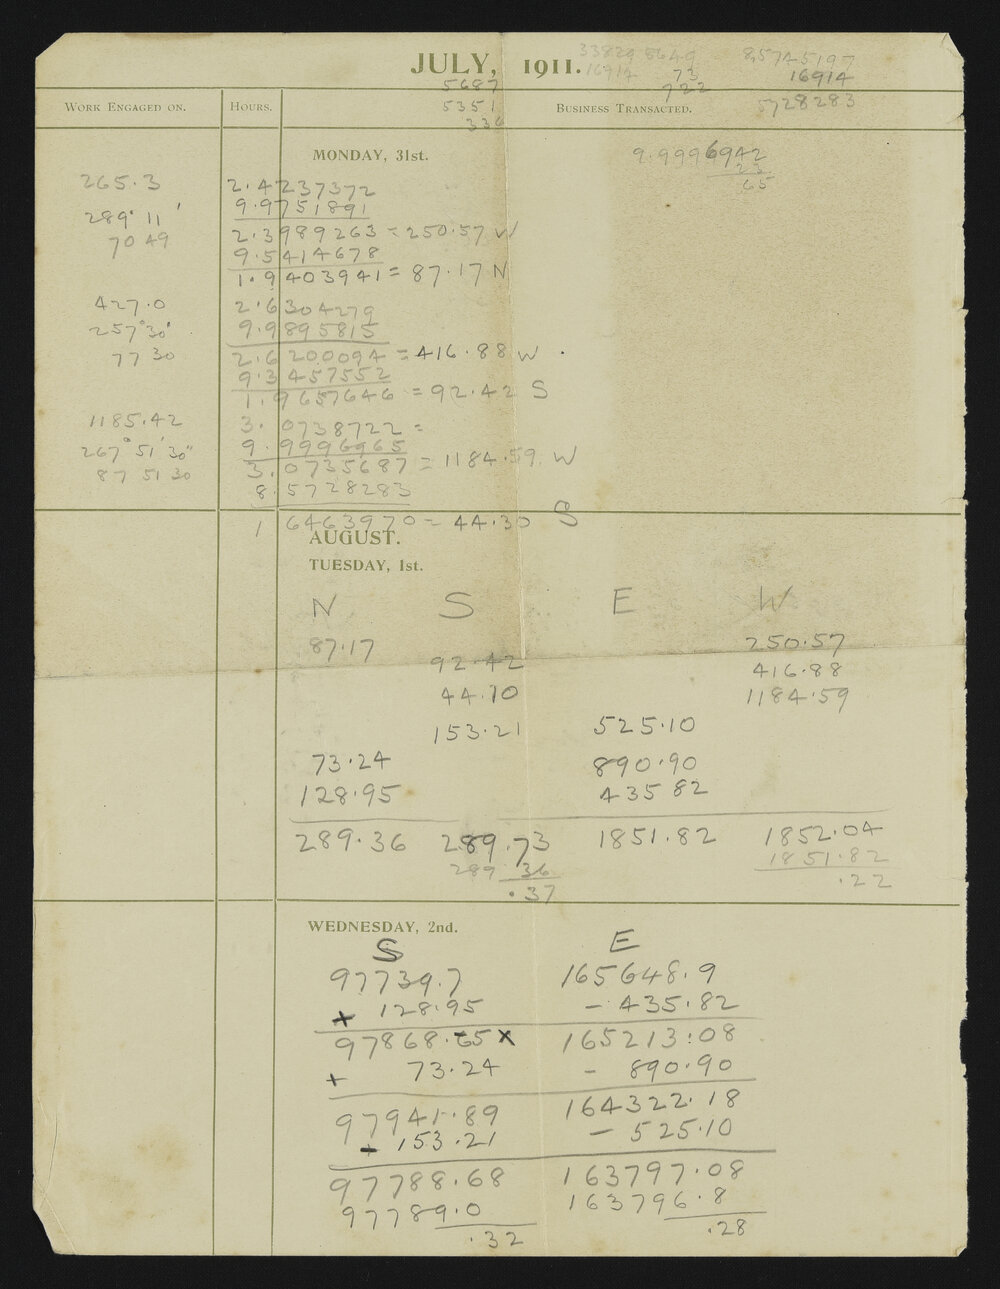 JULY, 1911.
33829 8649
16914 73
722
8.5745197
16914
5728283
5687
5351
336
WORK ENGAGED ON. HOURS. BUSINESS TRANSACTED.
MONDAY, 31st.
9.9996942
23
65
265.3 2.4237372
9.9751891
289° 11' 2.3989263 = 250.57 W
70 49 9.5414678
1.9403941 = 87.17 N
427.0 2.6304279
257° 30' 9.9895815
77 30 2.6200094 = 416.88 W .
9.3457552
1.9657646 = 92.42 S
1185.42 3.0738722 =
267° 51' 30" 9.9996965
87 51 30 3.0735687 = 1184.59. W
8.5728283
1 6463970 = 44.30 S
AUGUST.
TUESDAY, 1st.
N S E W
87.17 250.57
92.42 416.88
44.10 1184.59
153.21 525.10
73.24 890.90
128.95 435 82
289.36 289.73 1851.82 1852.04
289 36 1851.82
.37 .22
WEDNESDAY, 2nd.
S E
97739.7 165648.9
+ 128.95 - 435.82
97868.65 x 165213.08
+ 73.24 - 890.90
97941.89 164322.18
+ 153.21 - 525.10
97788.68 163797.08
97789.0 163796.8
.32 .28